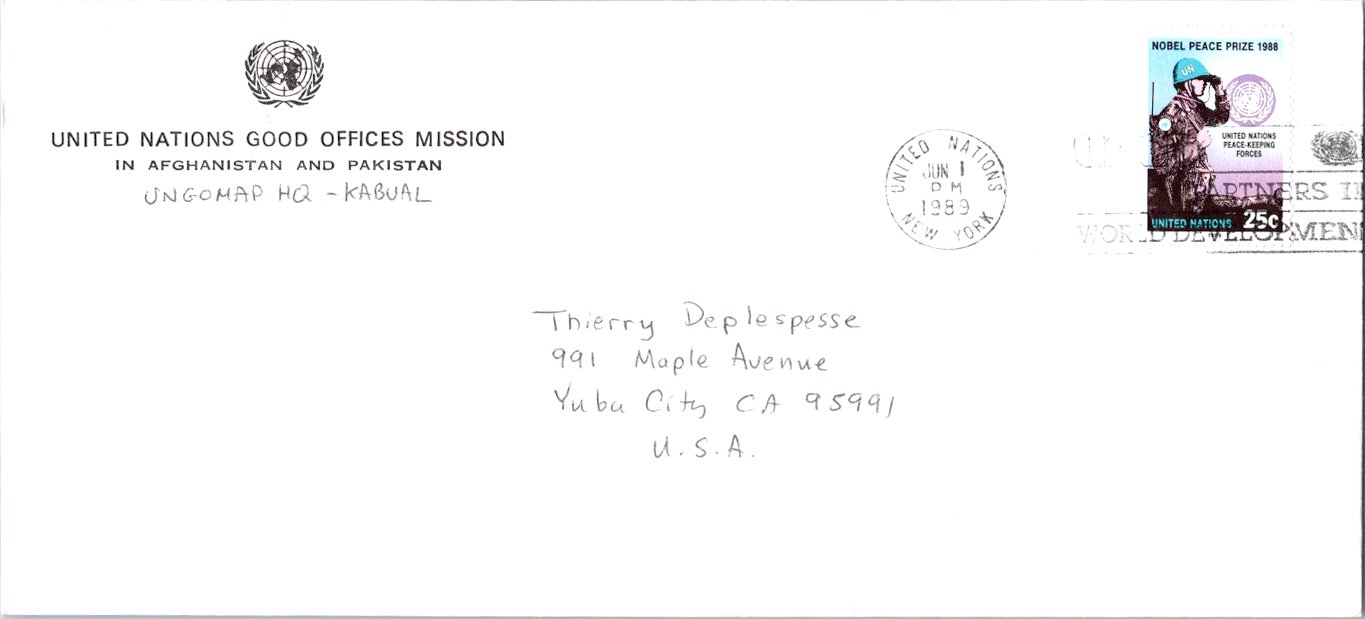 UNITED NATIONS GOOD OFFICES MISSION
IN AFGHANISTAN AND PAKISTAN
UNGOMAP HQ - KABUAL
UNITED NATIONS
JUN 1
PM
1989
NEW YORK
NOBEL PEACE PRIZE 1988
UN
UNITED NATIONS
PEACE-KEEPING
FORCES
UNITED NATIONS 25c
PARTNERS I
WORLD DEVELOPMEN
Thierry Deplespesse
991 Maple Avenue
Yuba City CA 95991
U.S.A.